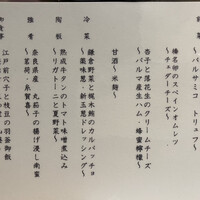 前菜
～バルサミコ トリュフ～
榛名卵のスペインオムレツ
～チェダーチーズ～
杏子と落花生のクリームチーズ
～パルマ産生ハム・蜂蜜檸檬～
甘酒～米麹～
冷菜
鎌倉野菜と梶木鮪のカルパッチョ
～黒酢風味・新玉葱ドレッシング～
陶板
熟成牛タンのトマト味噌煮込み
～リガトーニと夏野菜～
強肴
奈良県産 丸茄子の揚げ浸し南蛮
～茗荷、糸賀喜～
御食事
江戸前穴子と枝豆の羽釜御飯